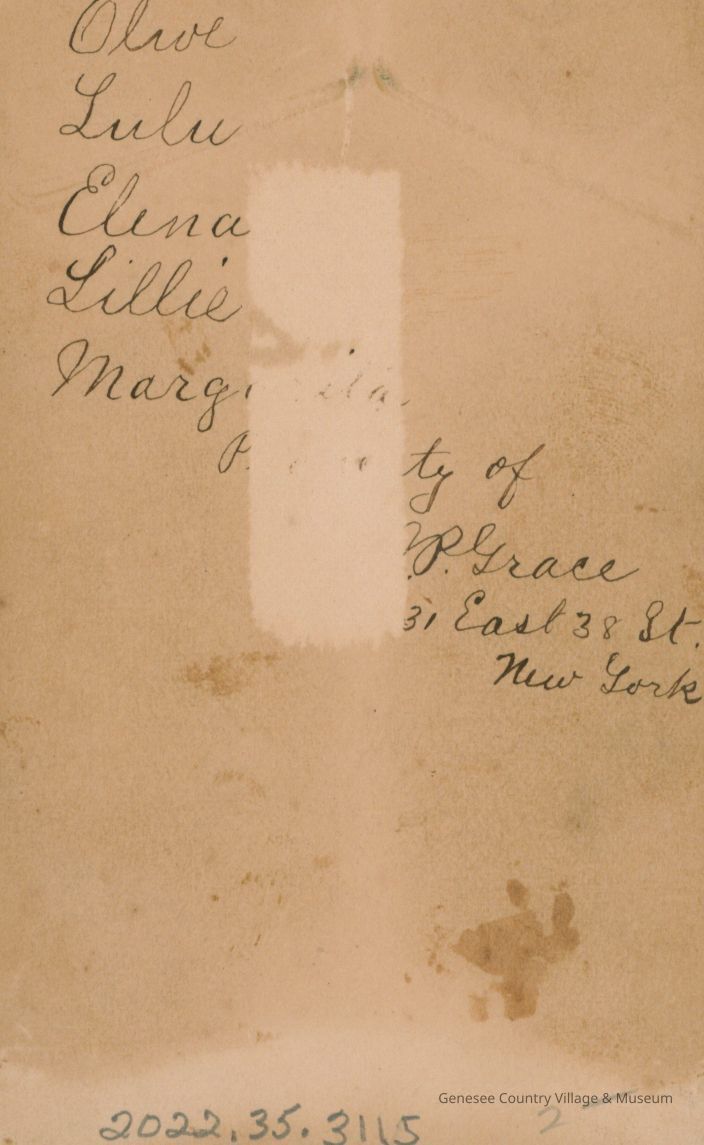 Olive
Lulu
Elena
Lillie
Property of
P. Grace
31 East 38 St.
New York
Genesee Country Village & Museum
2022.35.3115
2